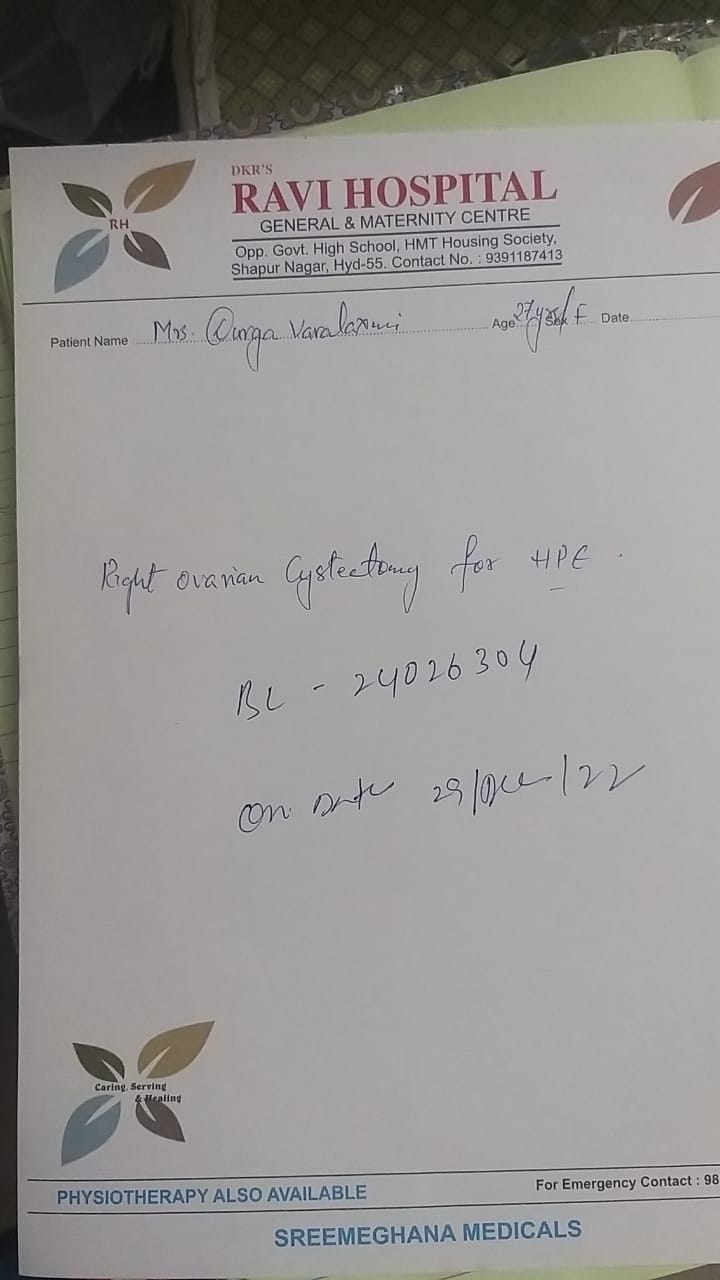 DKR'S
RAVI HOSPITAL
RH
GENERAL & MATERNITY CENTRE
Opp. Govt. High School, HMT Housing Society,
Shapur Nagar, Hyd-55. Contact No. : 9391187413
Patient Name Mrs. Durga Varalaxmi Age 27yrs/ Sex F Date
Right Ovarian Cystectomy for HPE.
BL - 24026304
On Date 29/Dec/22
Caring, Serving
& Healing
For Emergency Contact : 98
PHYSIOTHERAPY ALSO AVAILABLE
SREEMEGHANA MEDICALS